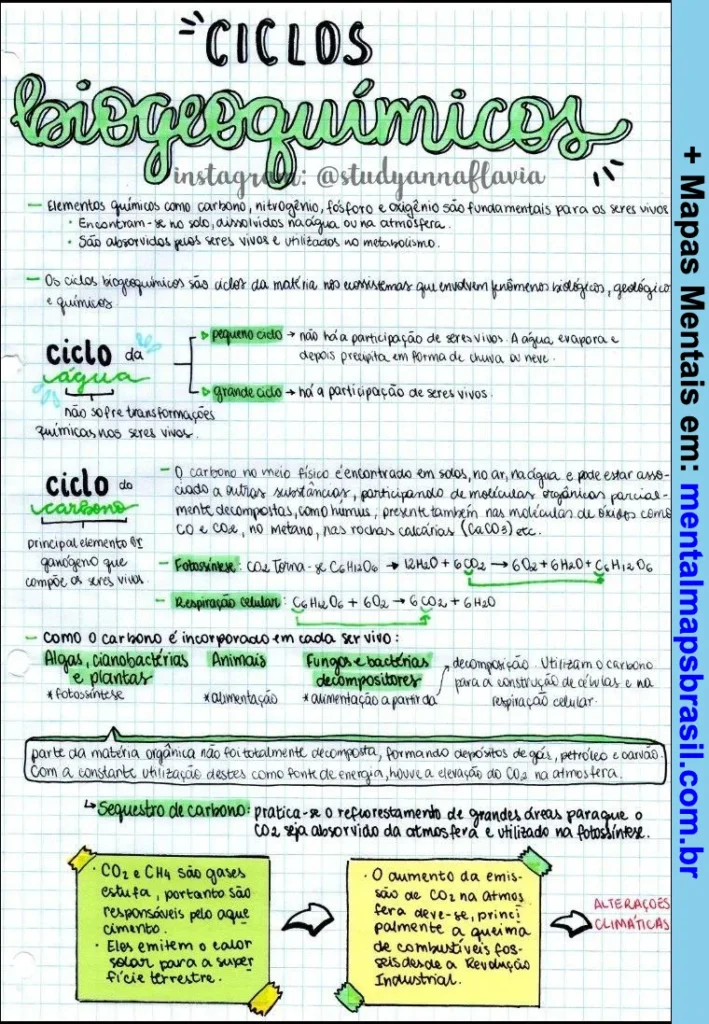 CICLOS
biogeoquímicos
instagram: @studyannaflavia
– Elementos químicos como carbono, nitrogênio, fósforo e oxigênio são fundamentais para os seres vivos
• Encontram-se no solo, dissolvidos na água ou na atmosfera.
• São absorvidos pelos seres vivos e utilizados no metabolismo.
– Os ciclos biogeoquímicos são ciclos da matéria nos ecossistemas que envolvem fenômenos biológicos, geológico
e químicos.
ciclo da
água
não sofre transformações
químicas nos seres vivos.
pequeno ciclo → não há a participação de seres vivos. A água evapora e
depois precipita em forma de chuva ou neve.
grande ciclo → há a participação de seres vivos.
ciclo do
carbono
principal elemento
ganógeno que
compõe os seres vivos.
– O carbono no meio físico é encontrado em solos, no ar, na água e pode estar asso-
ciado a outras substâncias, participando de moléculas orgânicas parcial-
mente decompostas, como humus, presente também nas moléculas de óxidos como
CO e CO2, no metano, nas rochas calcárias (CaCO3) etc.
– Fotossíntese: CO2 torna-se C6H12O6 → 12H2O + 6CO2 → 6O2 + 6H2O + C6H12O6
– Respiração celular: C6H12O6 + 6O2 → 6CO2 + 6H2O
– como o carbono é incorporado em cada ser vivo:
Algas, cianobactérias
e plantas
* fotossíntese
Animais
* alimentação
Fungos e bactérias
decompositores
* alimentação a partir da
decomposição. Utilizam o carbono
para a construção de células e na
respiração celular.
parte da matéria orgânica não foi totalmente decomposta, formando depósitos de gás, petróleo e carvão.
Com a constante utilização destes como fonte de energia, houve a elevação do CO2 na atmosfera.
↳ Sequestro de carbono: pratica-se o reflorestamento de grandes áreas para que o
CO2 seja absorvido da atmosfera e utilizado na fotossíntese.
• CO2 e CH4 são gases
estufa, portanto são
responsáveis pelo aque
cimento.
• Eles emitem o calor
solar para a super
fície terrestre.
• O aumento da emis-
são de CO2 na atmos
fera deve-se, princi
palmente a queima
de combustíveis fós-
seis desde a Revolução
Industrial.
ALTERAÇÕES
CLIMÁTICAS
+ Mapas Mentais em: mentalmapsbrasil.com.br